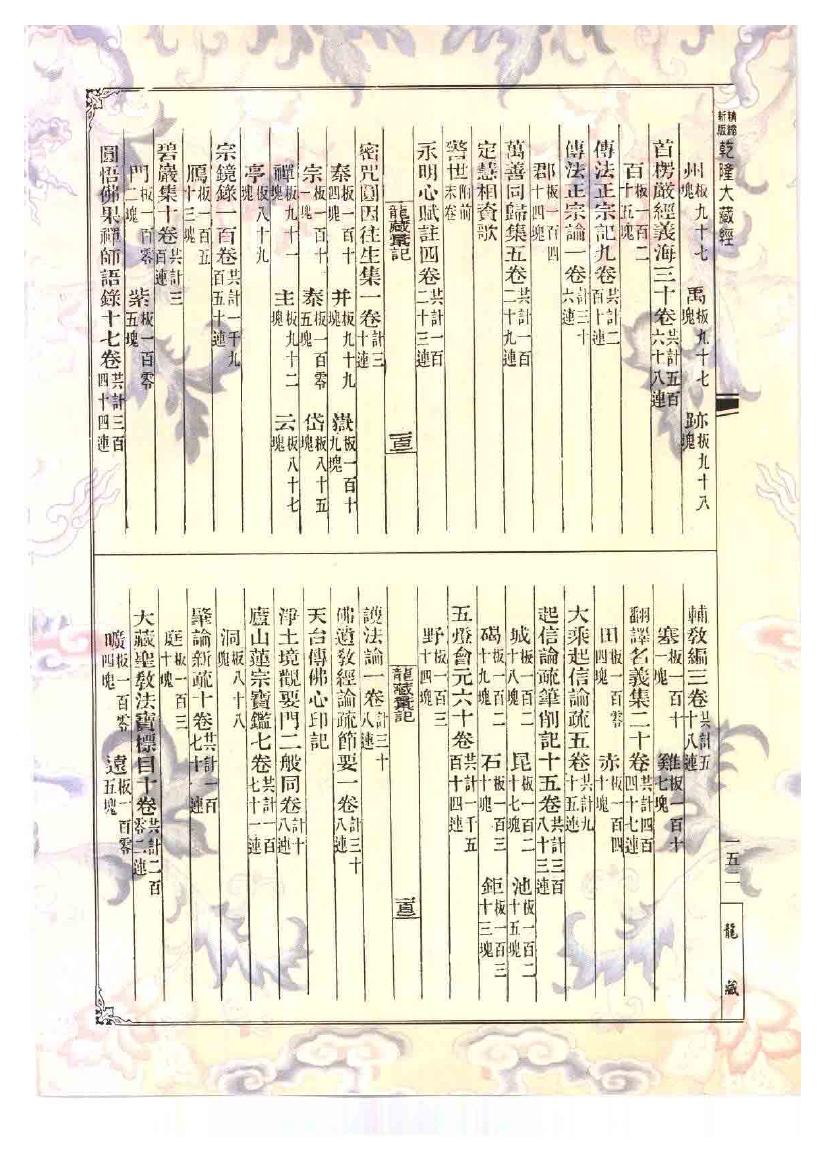 精縮新版乾隆大藏經
州板九十七塊 禹板九十七塊 跡板九十八塊
首楞嚴經義海三十卷共計五百六十八連
百板一百二十五塊
傳法正宗記九卷共計二百十連
傳法正宗論一卷計三十六連
郡板一百四十四塊
萬善同歸集五卷共計一百二十九連
定慧相資歌
警世附前末卷
永明心賦註四卷共計一百二十三連
龍藏彙記
密咒圓因往生集一卷計三十連
秦板一百十四塊 并板九十九塊 嶽板一百十九塊
宗板一百十一塊 泰板一百零五塊 岱板八十五塊
禪板九十一塊 主板九十二塊 云板八十七塊
亭板八十九塊
宗鏡錄一百卷共計一千九百五十連
鴈板一百五十三塊
碧巖集十卷共計三百連
門板一百零二塊 紫板一百零五塊
圜悟佛果禪師語錄十七卷共計三百四十四連
輔教編三卷共計五十八連
塞板一百十一塊 雞板一百十七塊
翻譯名義集二十卷共計四百四十七連
田板一百零四塊 赤板一百四十塊
大乘起信論疏五卷共計九十五連
起信論疏筆削記十五卷共計三百八十三連
城板一百二十八塊 昆板一百二十七塊 池板一百二十五塊
碣板一百二十九塊 石板一百三十塊 鉅板一百三十三塊
五燈會元六十卷共計一千五百十四連
野板一百三十四塊
龍藏彙記
護法論一卷計三十八連
佛遺教經論疏節要一卷計三十八連
天台傳佛心印記
淨土境觀要門二般同卷計十八連
廬山蓮宗寶鑑七卷共計一百七十一連
洞板八十八塊
肇論新疏十卷共計一百七十一連
庭板一百三十塊
大藏聖教法寶標目十卷共計二百零二連
曠板一百零四塊 遠板一百零五塊
一五二
龍藏